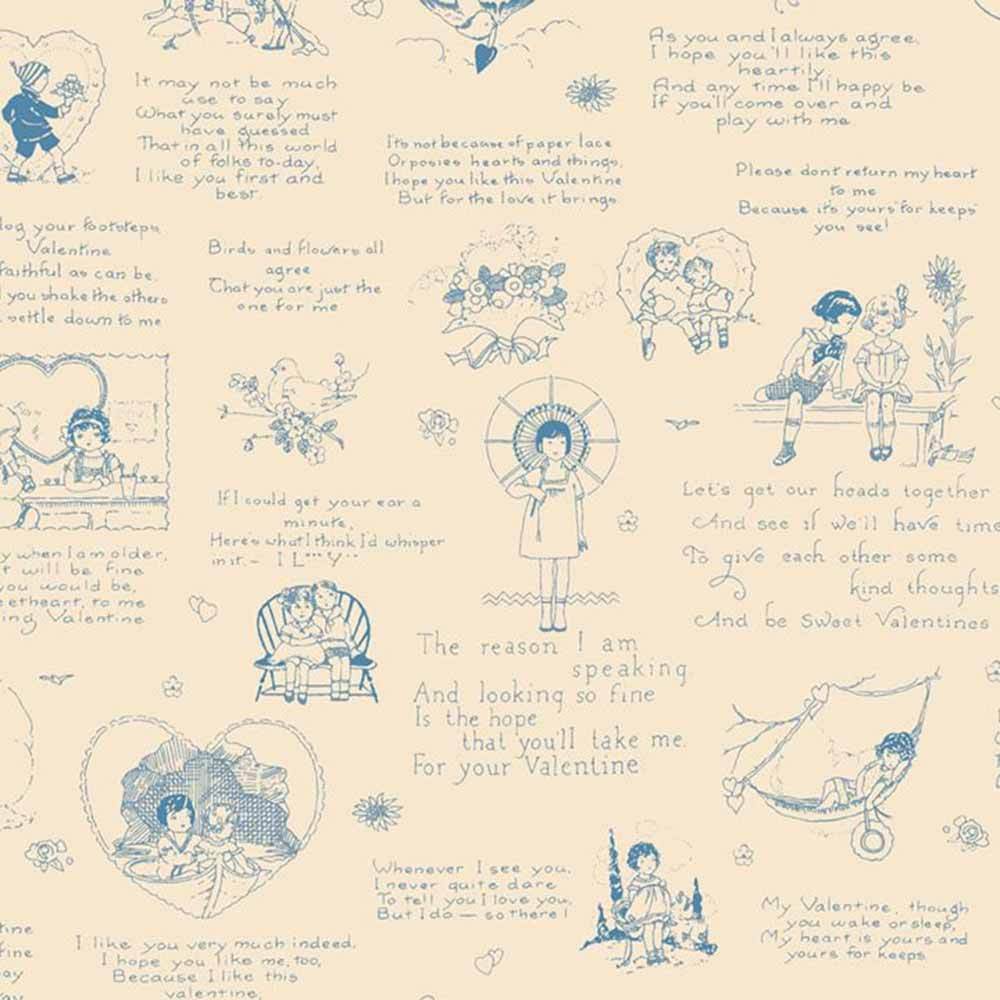 As you and I always agree,
I hope you'll like this
heartily,
And any time I'll happy be
If you'll come over and
play with me
It may not be much
use to say
What you surely must
have guessed
That in all this world
of folks to-day,
I like you first and
best.
It's not because of paper lace
Or posies hearts and things,
I hope you like this Valentine
But for the love it brings.
Please don't return my heart
to me
Because it's yours "for keeps"
you see!
your footsteps
Valentine
faithful as can be.
you shake the others
settle down to me
Birds and flowers all
agree
That you are just the
one for me
Let's get our heads together
And see if we'll have time
To give each other some
kind thoughts
And be sweet Valentines
If I could get your ear a
minute,
Here's what I think I'd whisper
in it.- I L*** Y**
when I am older,
will be fine
you would be,
to me
Valentine
The reason I am
speaking
And looking so fine
Is the hope
that you'll take me
For your Valentine
Whenever I see you,
I never quite dare
To tell you I love you,
But I do — so there!
My Valentine, though
you wake or sleep,
My heart is yours and
yours for keeps
I like you very much indeed.
I hope you like me, too,
Because I like this
valentine,